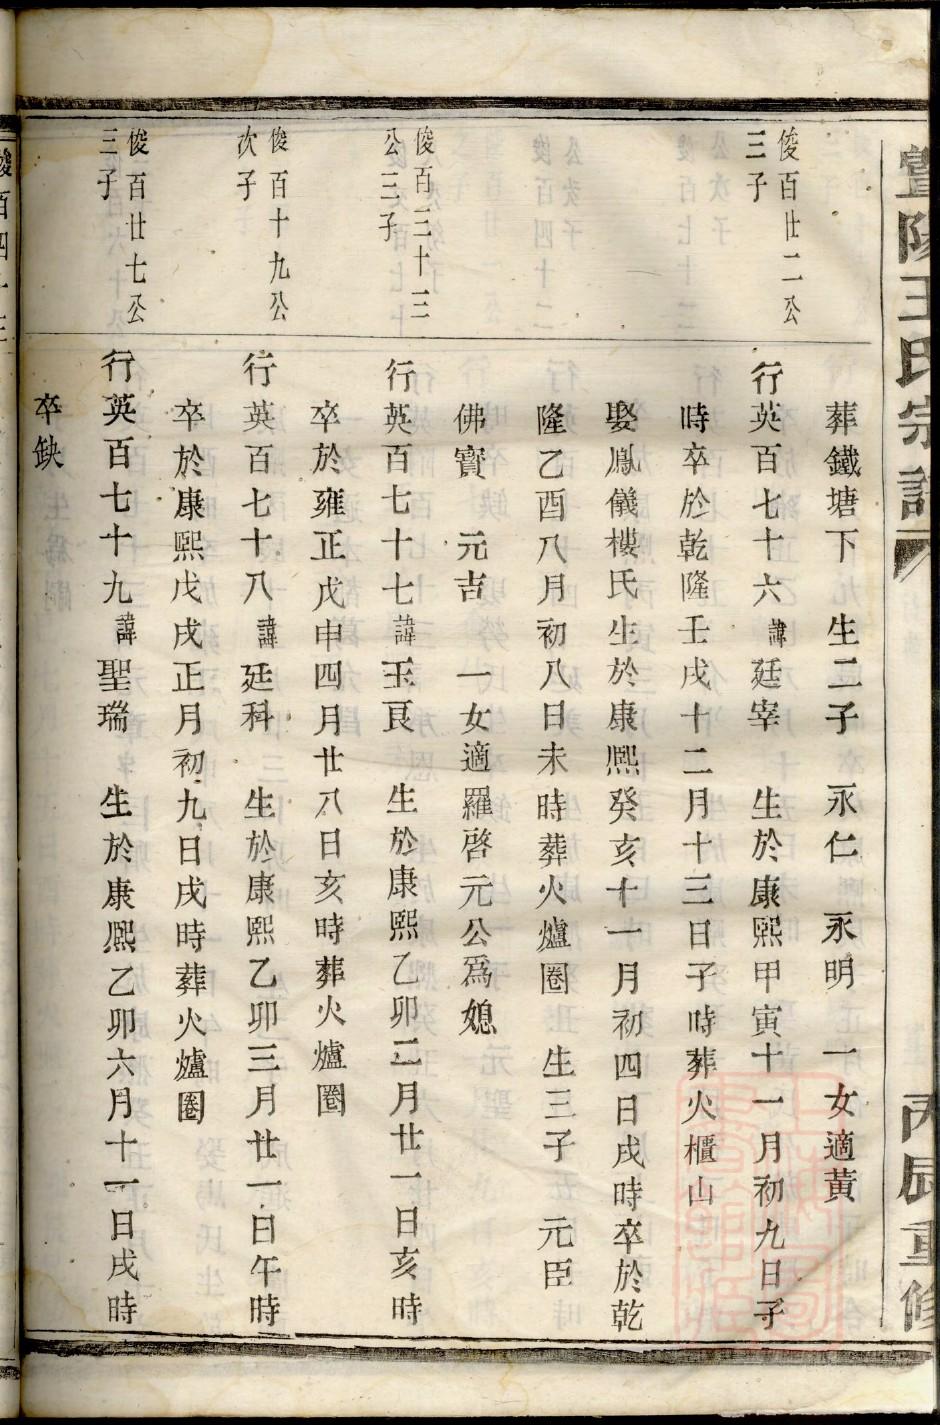 暨陽王氏宗譜
丙辰重修
葬鐵塘下 生二子 永仁 永明 一女適黃
俊百廿二公
三子
行英百七十六諱廷宰 生於康熙甲寅十一月初九日子
時卒於乾隆壬戌十二月十三日子時葬火櫃山
娶鳳儀樓氏生於康熙癸亥十一月初四日戌時卒於乾
隆乙酉八月初八日未時葬火爐圈 生三子 元臣
佛寶 元吉 一女適羅啓元公爲媳
俊百三十三
公三子
行英百七十七諱玉良 生於康熙乙卯二月廿一日亥時
卒於雍正戊申四月廿八日亥時葬火爐圈
俊百十九公
次子
行英百七十八諱廷科 生於康熙乙卯三月廿一日午時
卒於康熙戊戌正月初九日戌時葬火爐圈
俊百廿七公
三子
行英百七十九諱聖瑞 生於康熙乙卯六月十一日戌時
卒缺